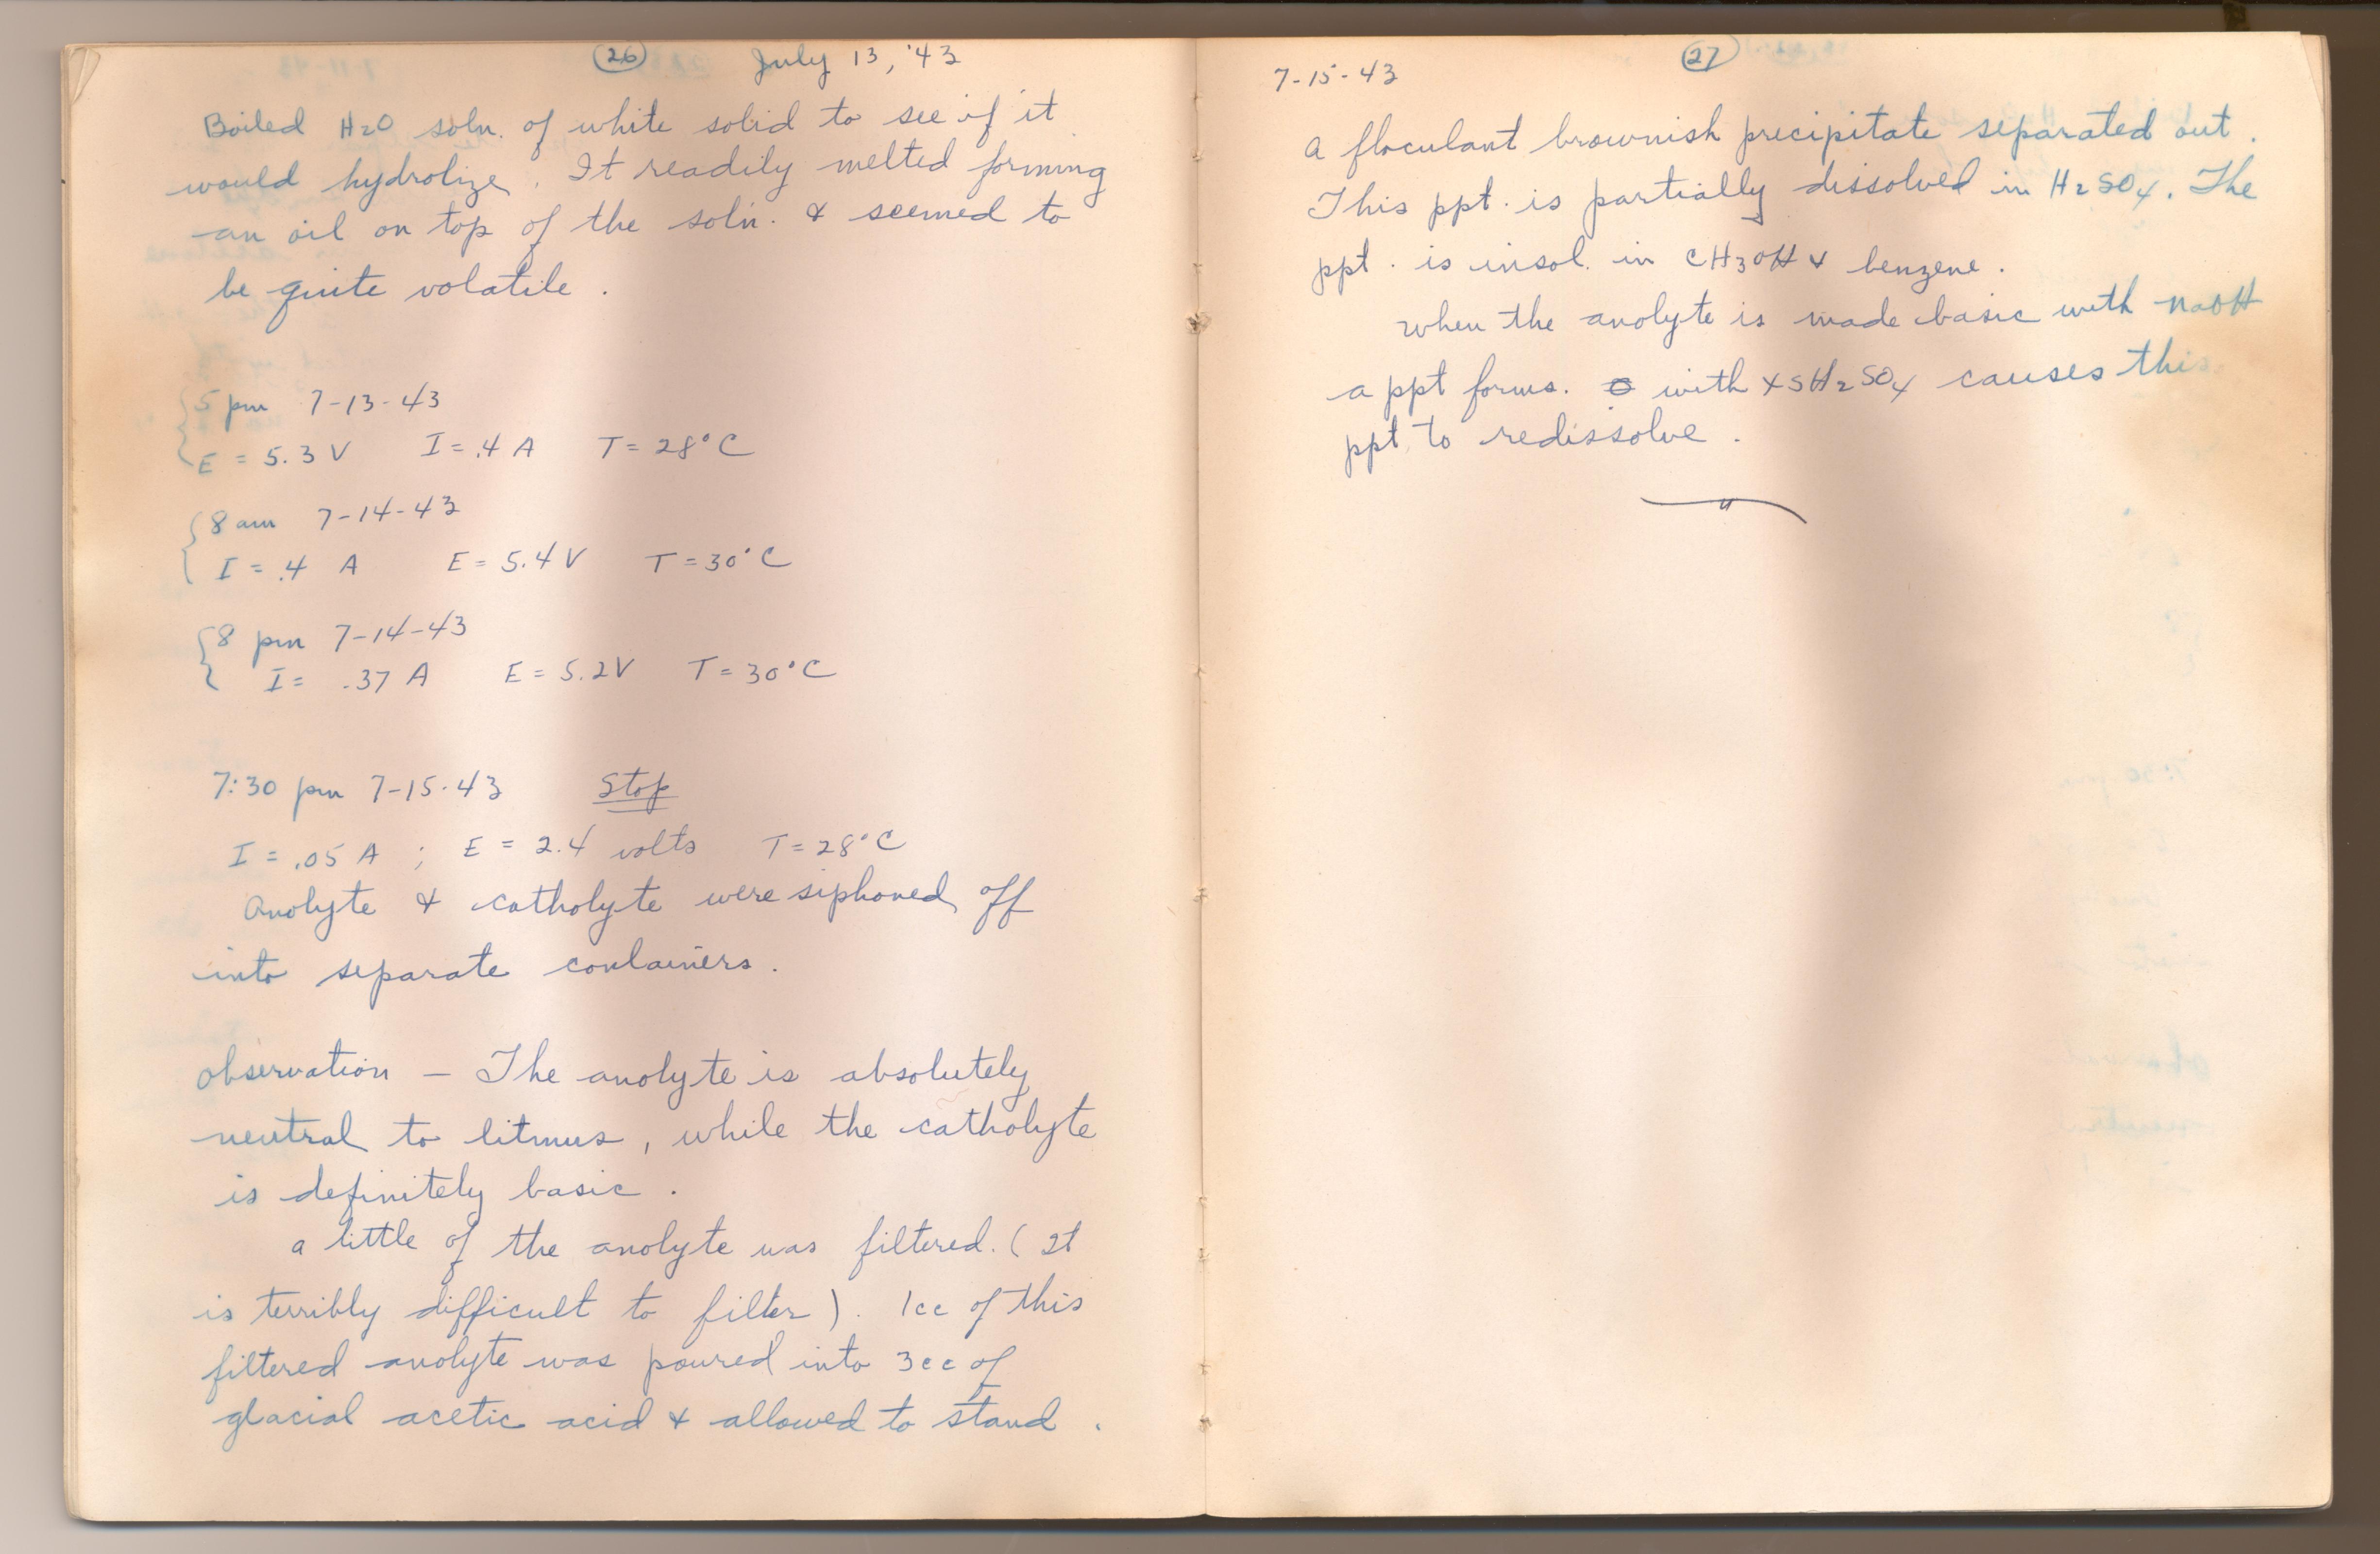 26 July 13, '43
Boiled H2O soln. of white solid to see if it
would hydrolize. It readily melted forming
an oil on top of the soln. & seemed to
be quite volatile.
5 pm 7-13-43
E = 5.3 V I = .4 A T = 28°C
8 am 7-14-43
I = .4 A E = 5.4 V T = 30°C
8 pm 7-14-43
I = .37 A E = 5.2V T = 30°C
7:30 pm 7-15-43 Stop
I = .05 A ; E = 2.4 volts T = 28°C
Anolyte & catholyte were siphoned off
into separate containers.
observation — The anolyte is absolutely
neutral to litmus, while the catholyte
is definitely basic.
a little of the anolyte was filtered. (It
is terribly difficult to filter). 1cc of this
filtered anolyte was poured into 3cc of
glacial acetic acid & allowed to stand.
7-15-43 27
a floculant brownish precipitate separated out.
This ppt. is partially dissolved in H2SO4. The
ppt. is insol. in CH3OH & benzene.
when the anolyte is made basic with NaOH
a ppt forms. with xsH2SO4 causes this
ppt. to redissolve.